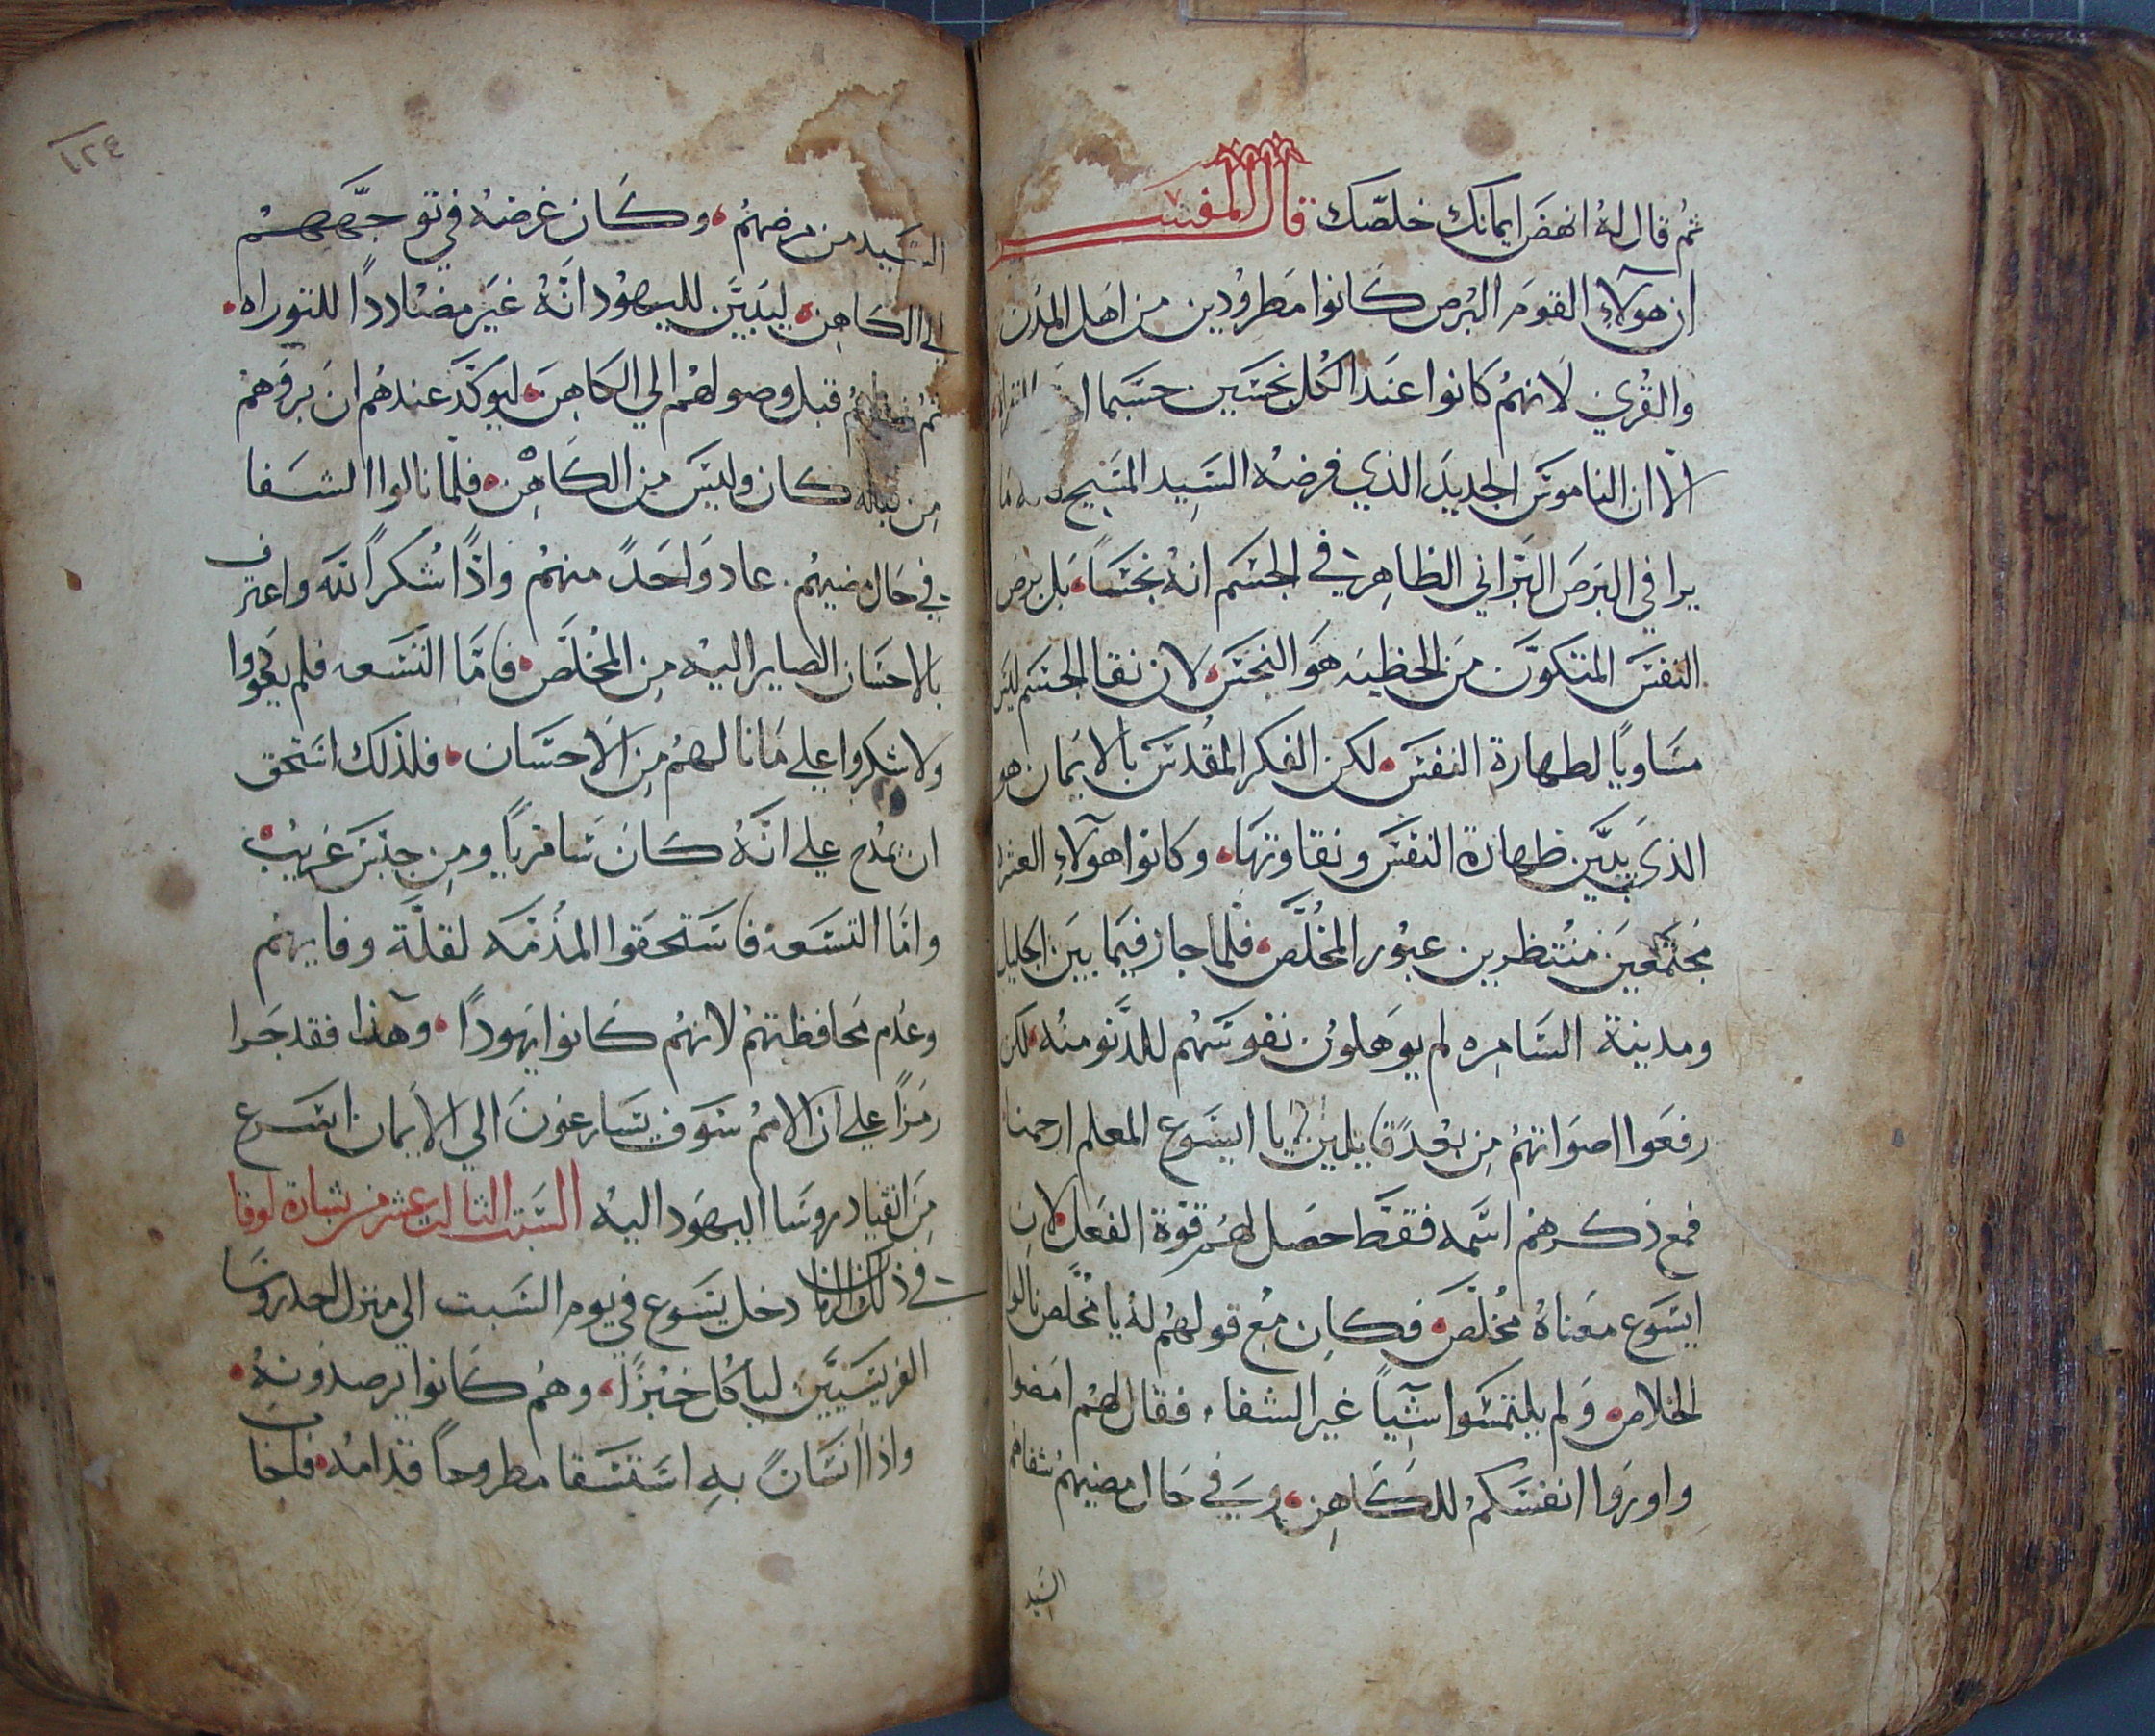 ثم قال له انهض ايمانك خلصك قال المفسر
ان هولاء القوم البرص كانوا مطرودين من اهل المدن
والقري لانهم كانوا عند الكل نجسين حسبما
الا ان الناموس الجديد الذي فرضه السيد المسيح ما
يرا في البرص البراني الظاهر في الجسم انه نجسا، بل برص
النفس المتكون من الخطيه هو النجس، لان نقا الجسم ليس
مساويا لطهارة النفس، لكن الفكر المقدس بالايمان هو
الذي يبين طهارة النفس ونقاوتها، وكانوا هولاء العشره
مجتمعين منتظرين عبور المخلص، فلما جاز فيما بين الجليل
ومدينة السامره لم يوهلون نفوسهم للدنو منه، لكن
رفعوا اصواتهم من بعد قايلين يا ايسوع المعلم ارحمنا
فمع ذكرهم اسمه فقط حصل لهم قوة الفعل، لان
ايسوع معناه مخلص، فكان مع قولهم له يا مخلص نالوا
الخلاص، ولم يلتمسوا شيا غير الشفاء، فقال لهم امضوا
واوروا انفسكم للكاهن، وفي حال مضيهم شفاهم
السيد
٤٢٦
السيد من مرضهم، وكان غرضه في توجههم
الي الكاهن، ليبين لليهود انه غير مضاددا للتوراه،
ثم قبل وصولهم الي الكاهن، ليوكد عندهم ان بروهم
من قبله كان وليس من الكاهن، فلما نالوا الشفا
في حال مضيهم، عاد واحد منهم واذا شكرا لله واعترف
بالاحسان الصاير اليه من المخلص، فاما التسعه فلم يعودوا
ولا شكروا علي ما نالهم من الاحسان، فلذلك استحق
ان يمدح علي انه كان سامريا ومن جنس غريب،
واما التسعه فاستحقوا المذمه لقلة وفايهم
وعدم محافظتهم لانهم كانوا يهودا، وهذا فقد جرا
رمزا علي ان الامم سوف يسارعون الي الايمان اسرع
من انقياد روسا اليهود اليه السبت الثالث عشر من بشارة لوقا
في ذلك الزمان دخل يسوع في يوم السبت الي منزل احد روسا
الفريسيين لياكل خبزا، وهم كانوا يرصدونه،
واذا انسان به استسقا مطروحا قدامه، فاجاب